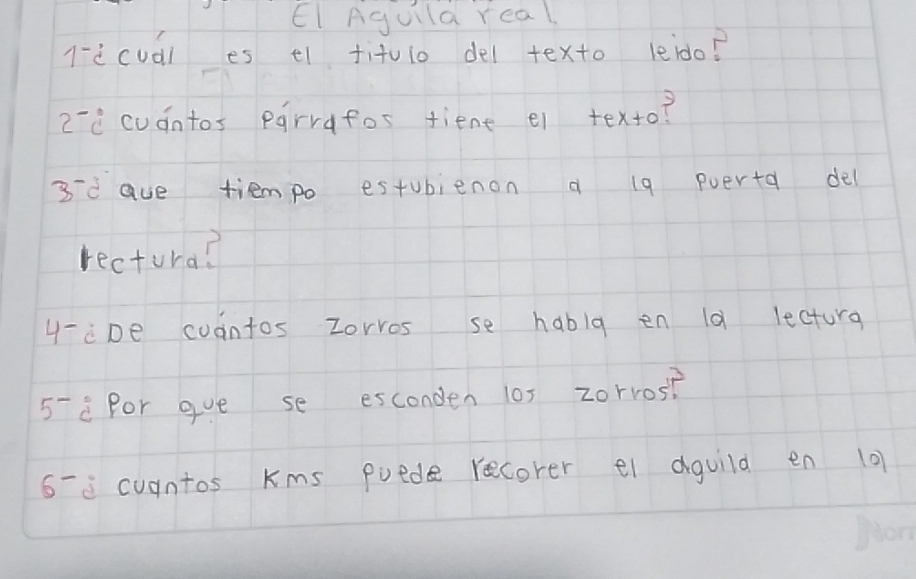 El Aguila real.
1-¿cuál es el titulo del texto leido?
2-¿cuántos párrafos tiene el texto?
3-¿que tiempo estubienon a la puerta del
lectura?
4-¿De cuántos zorros se habla en la lectura
5-¿Por que se esconden los zorros?
6-¿cuantos Kms puede recorer el aguila en lo